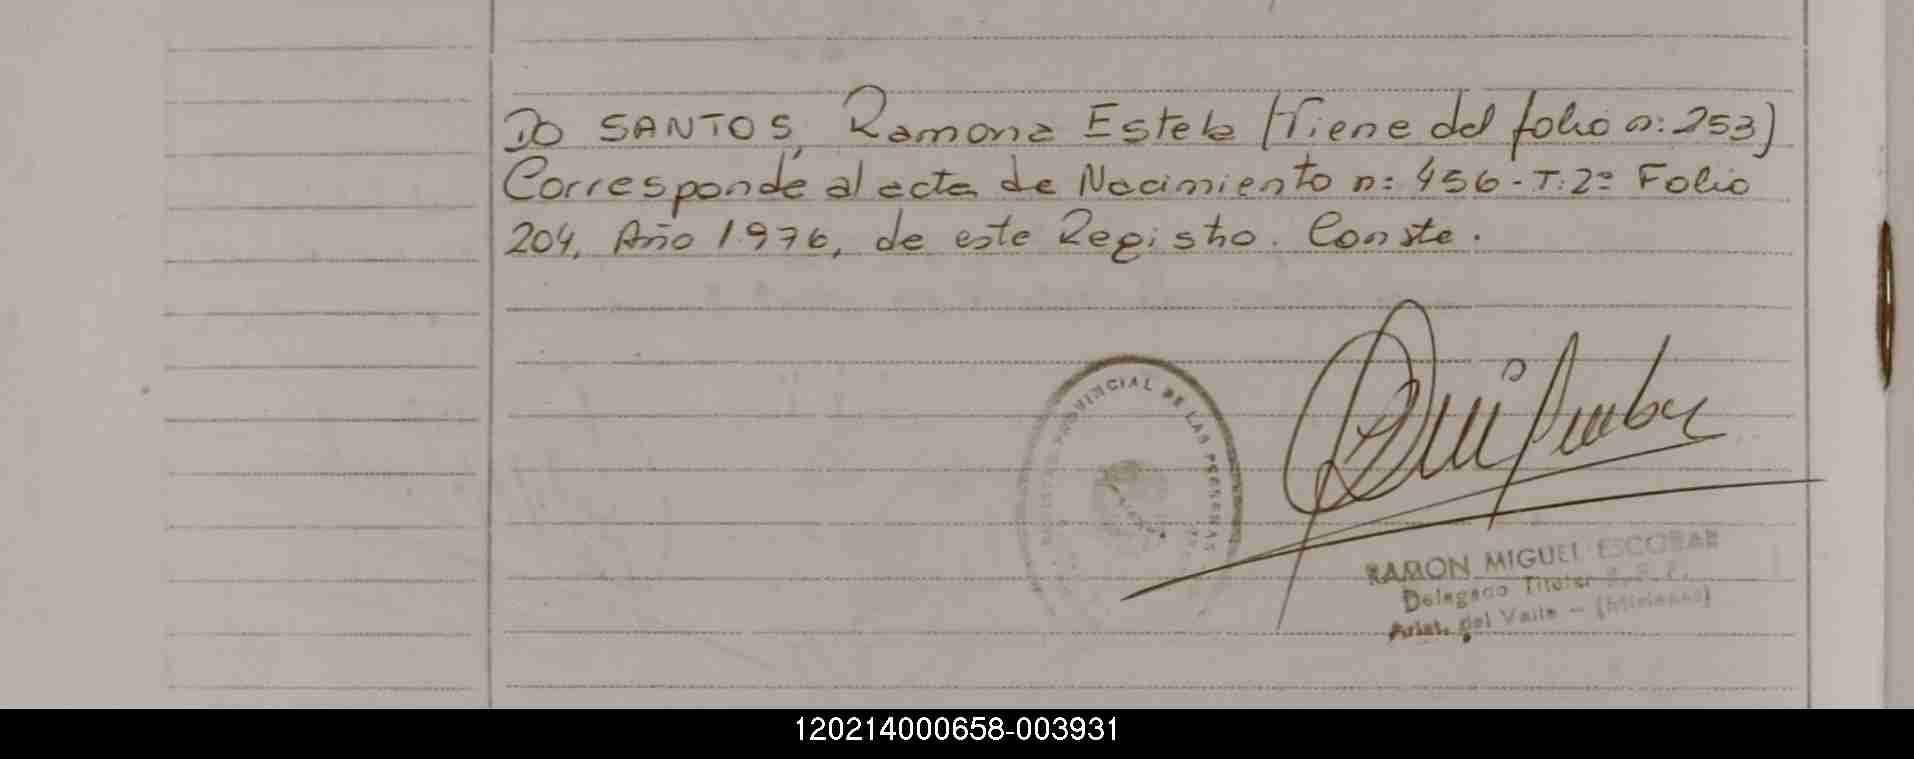 DO SANTOS, Ramona Estela (Viene del folio n: 253)
Corresponde al acta de Nacimiento n: 456 - T: 2º Folio
204, Año 1.976, de este Registro. Conste.
PROVINCIAL DE LAS PERSONAS
RAMON MIGUEL ESCOBAR
Delegado Titular R. P.
Arist. del Valle - (Misiones)
120214000658-003931